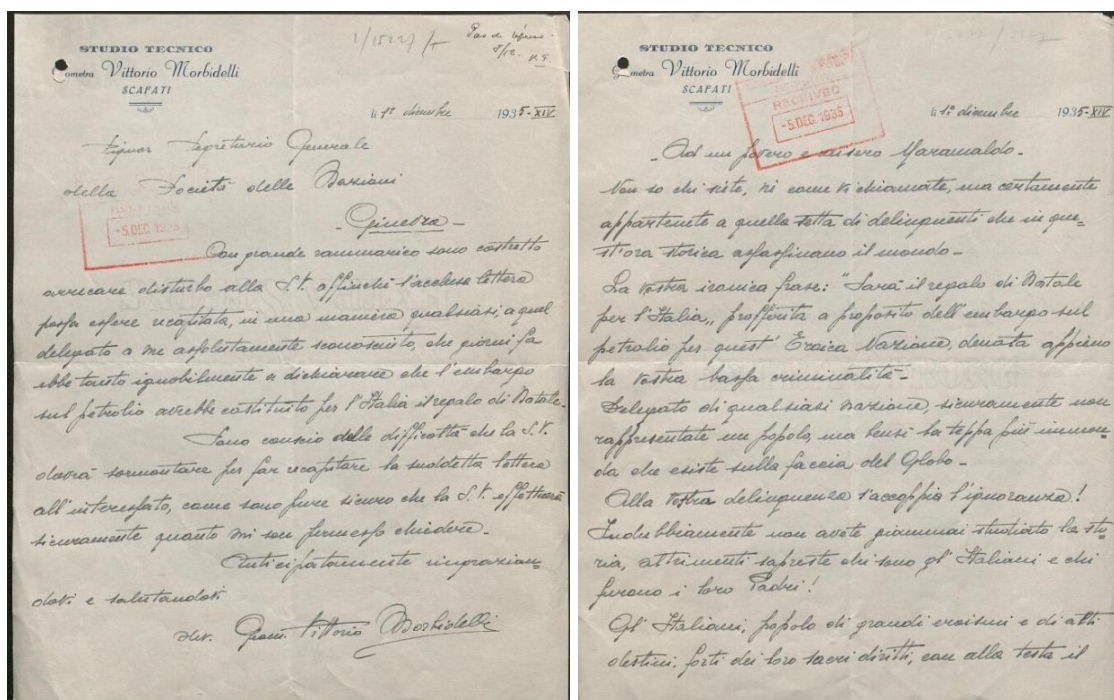 STUDIO TECNICO
Geometra Vittorio Morbidelli
SCAFATI
1/15227/
Pas de réponse.
5/12.
li 1° dicembre 1935-XIV
Signor Segretario Generale
della Società delle Nazioni
-Ginevra-
-5.DEC. 1935
Con grande rammarico sono costretto
arrecare disturbo alla S.V. affinchè l'acclusa lettera
possa essere recapitata, in una maniera qualsiasi, a quel
delegato a me assolutamente sconosciuto, che giorni fa
ebbe tanto ignobilmente a dichiarare che l'embargo
sul petrolio avrebbe costituito per l'Italia il regalo di Natale.
Sono conscio delle difficoltà che la S.V.
dovrà sormontare per far recapitare la suddetta lettera
all'interessato, come sono pure sicuro che la S.V. effettuerà
sicuramente quanto mi son permesso chiedere.
Anticipatamente ringrazian=
dovi e salutandovi
dev. Geom. Vittorio Morbidelli
STUDIO TECNICO
Geometra Vittorio Morbidelli
SCAFATI
RECEIVED
-5.DEC. 1935
li 1° dicembre 1935-XIV
-Ad un povero e misero Maramaldo-
Non so chi siete, nè come vi chiamate, ma certamente
appartenete a quella setta di delinquenti che in que=
st'ora storica assassinano il mondo-
La vostra ironica frase: "Sarà il regalo di Natale
per l'Italia,, profferita a proposito dell'embargo sul
petrolio per quest'Eroica Nazione, denota appieno
la vostra bassa criminalità-
Delegato di qualsiasi Nazione, sicuramente non
rappresentate un popolo, ma bensì la teppa più immon=
da che esiste sulla faccia del Globo-
Alla vostra delinquenza s'accoppia l'ignoranza!
Indubbiamente non avete giammai studiato la sto=
ria, altrimenti sapreste chi sono gl'Italiani e chi
furono i loro Padri!
Gl'Italiani, popolo di grandi eroismi e di alti
destini, forti dei loro sacri diritti, con alla testa il